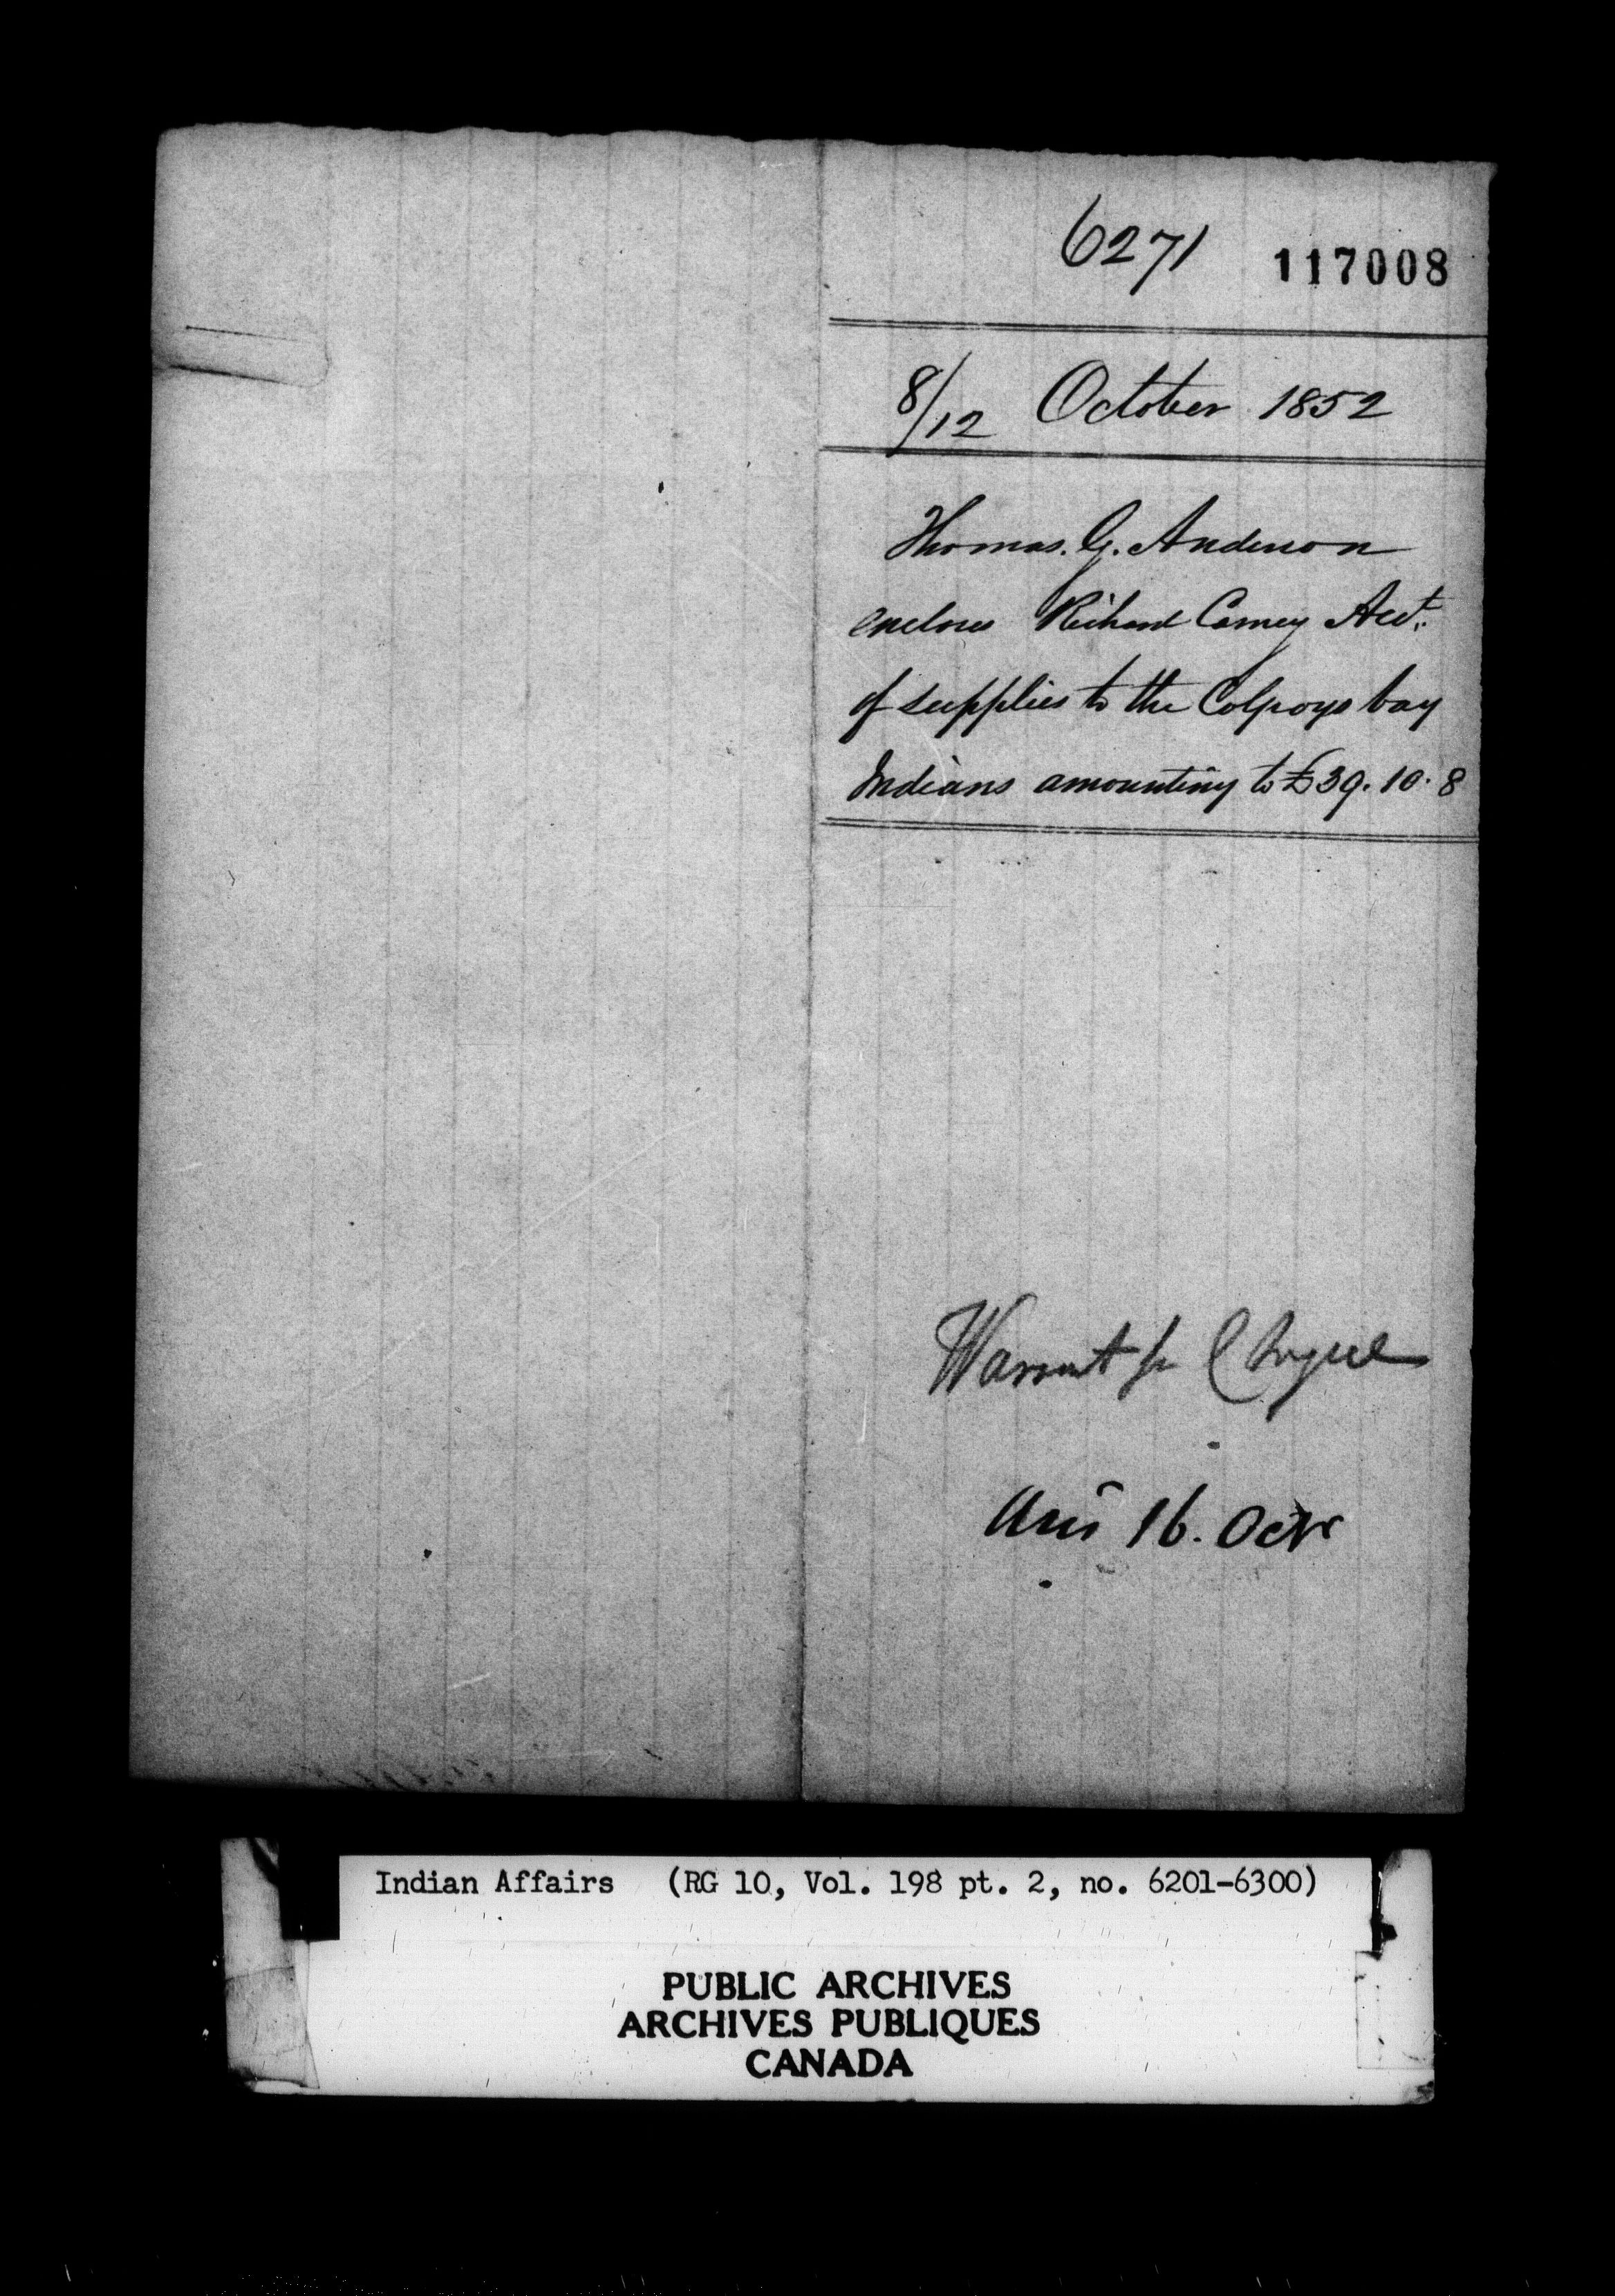 6271 117008
8/12 October 1852
Thomas. G. Anderson
encloses Richard Carney Acct.
of supplies to the Colpoys bay
Indians amounting to £39. 10. 8
Warrant for Cheque
Ansd 16. Octr
Indian Affairs (RG 10, Vol. 198 pt. 2, no. 6201-6300)
PUBLIC ARCHIVES
ARCHIVES PUBLIQUES
CANADA